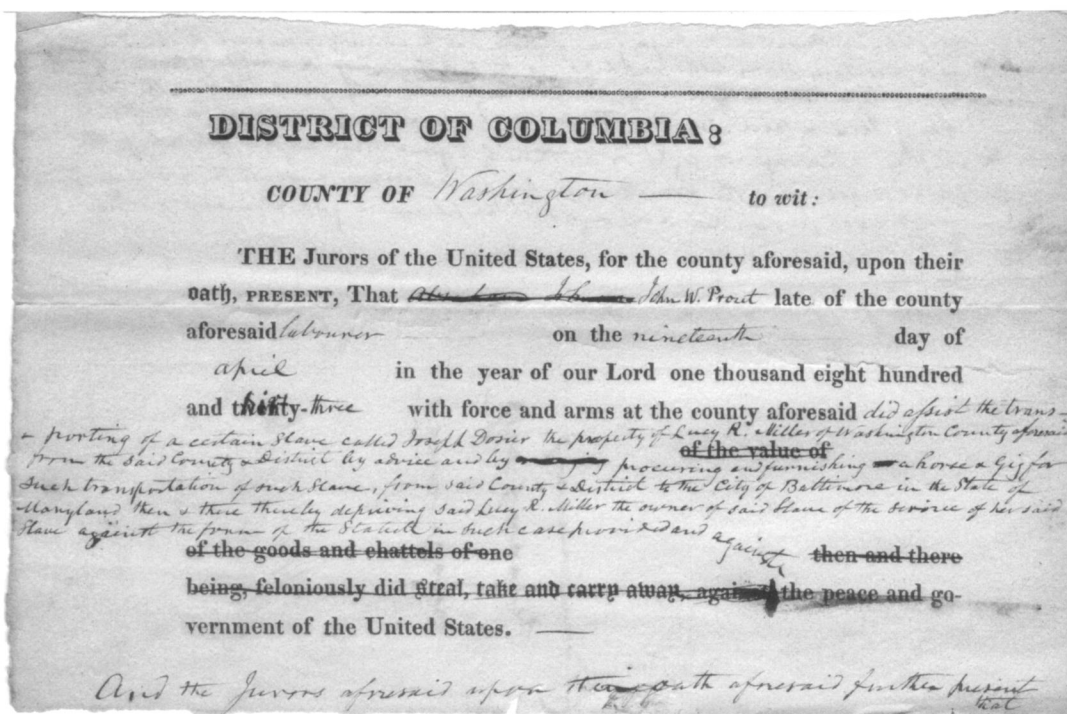 DISTRICT OF COLUMBIA:
COUNTY OF Washington — to wit:
THE Jurors of the United States, for the county aforesaid, upon their
oath, PRESENT, That John W. Prout late of the county
aforesaid labourer on the nineteenth day of
april in the year of our Lord one thousand eight hundred
and thirty-three with force and arms at the county aforesaid did assist the trans-
-porting of a certain Slave called Joseph Dosier the property of Lucy R. Miller of Washington County aforesaid
of the value of
from the said County & District by advice and by procuring and furnishing a horse & Gig for
such transportation of such Slave, from said County & District to the City of Baltimore in the State of
Maryland then & there thereby depriving said Lucy R. Miller the owner of said Slave of the service of her said
Slave against the form of the Statute in such case provided and against
of the goods and chattels of one then and there
being, feloniously did steal, take and carry away, against the peace and go-
vernment of the United States. —
And the Jurors aforesaid upon their oath aforesaid further present
that